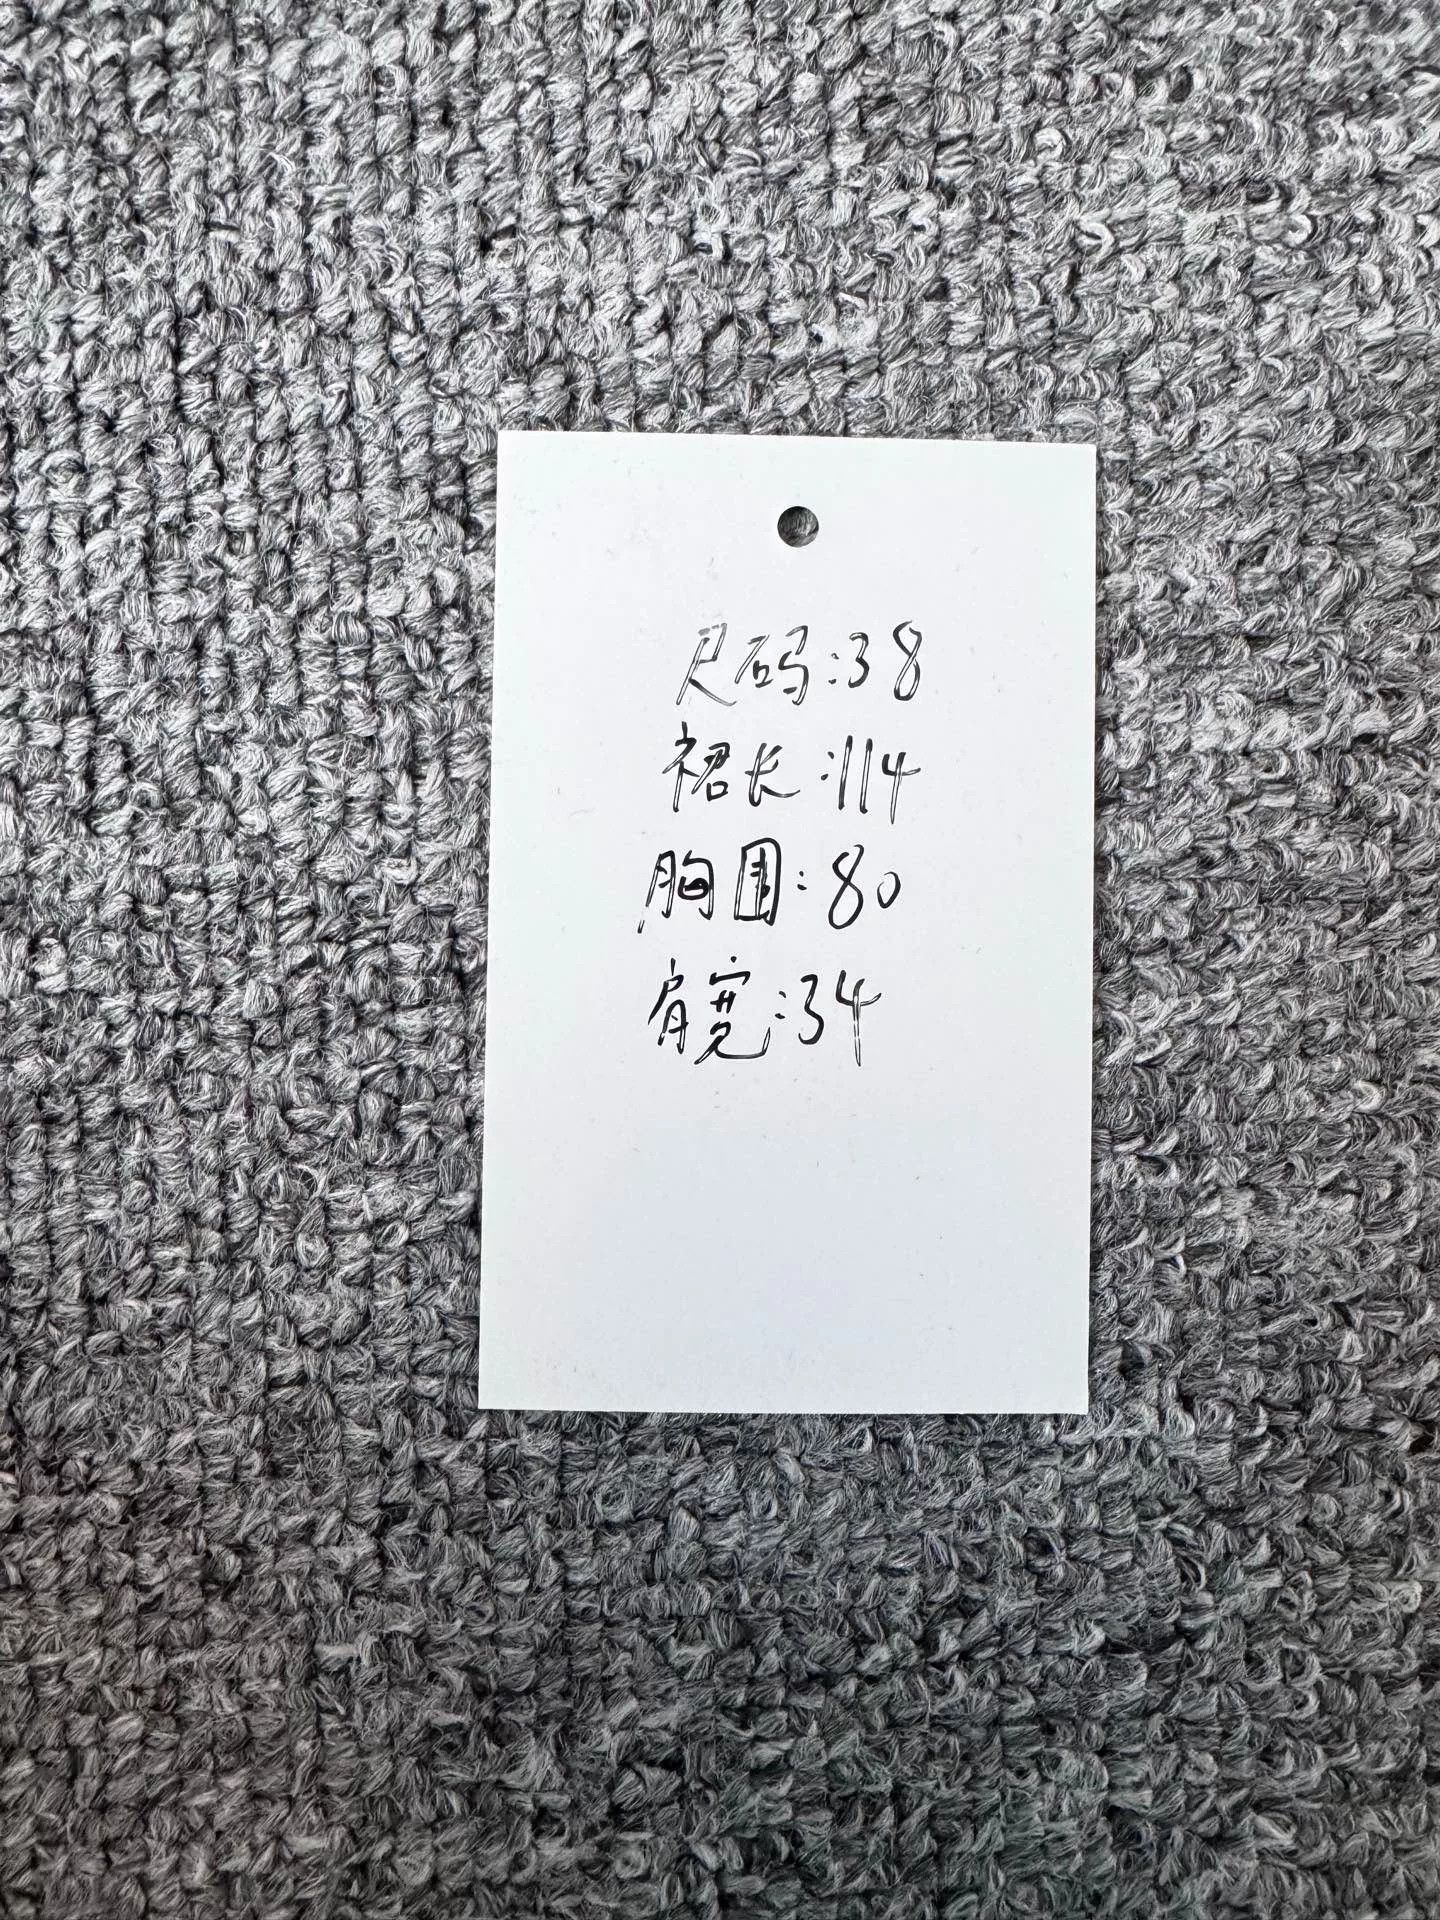 尺码:38
裙长:114
胸围:80
肩宽:34